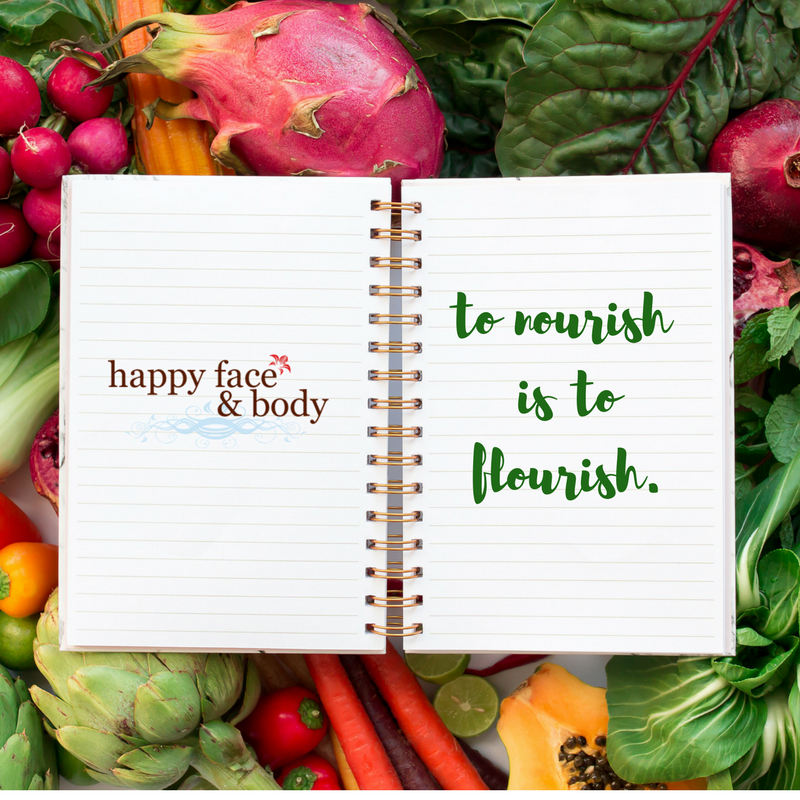 happy face
& body
to nourish
is to
flourish.